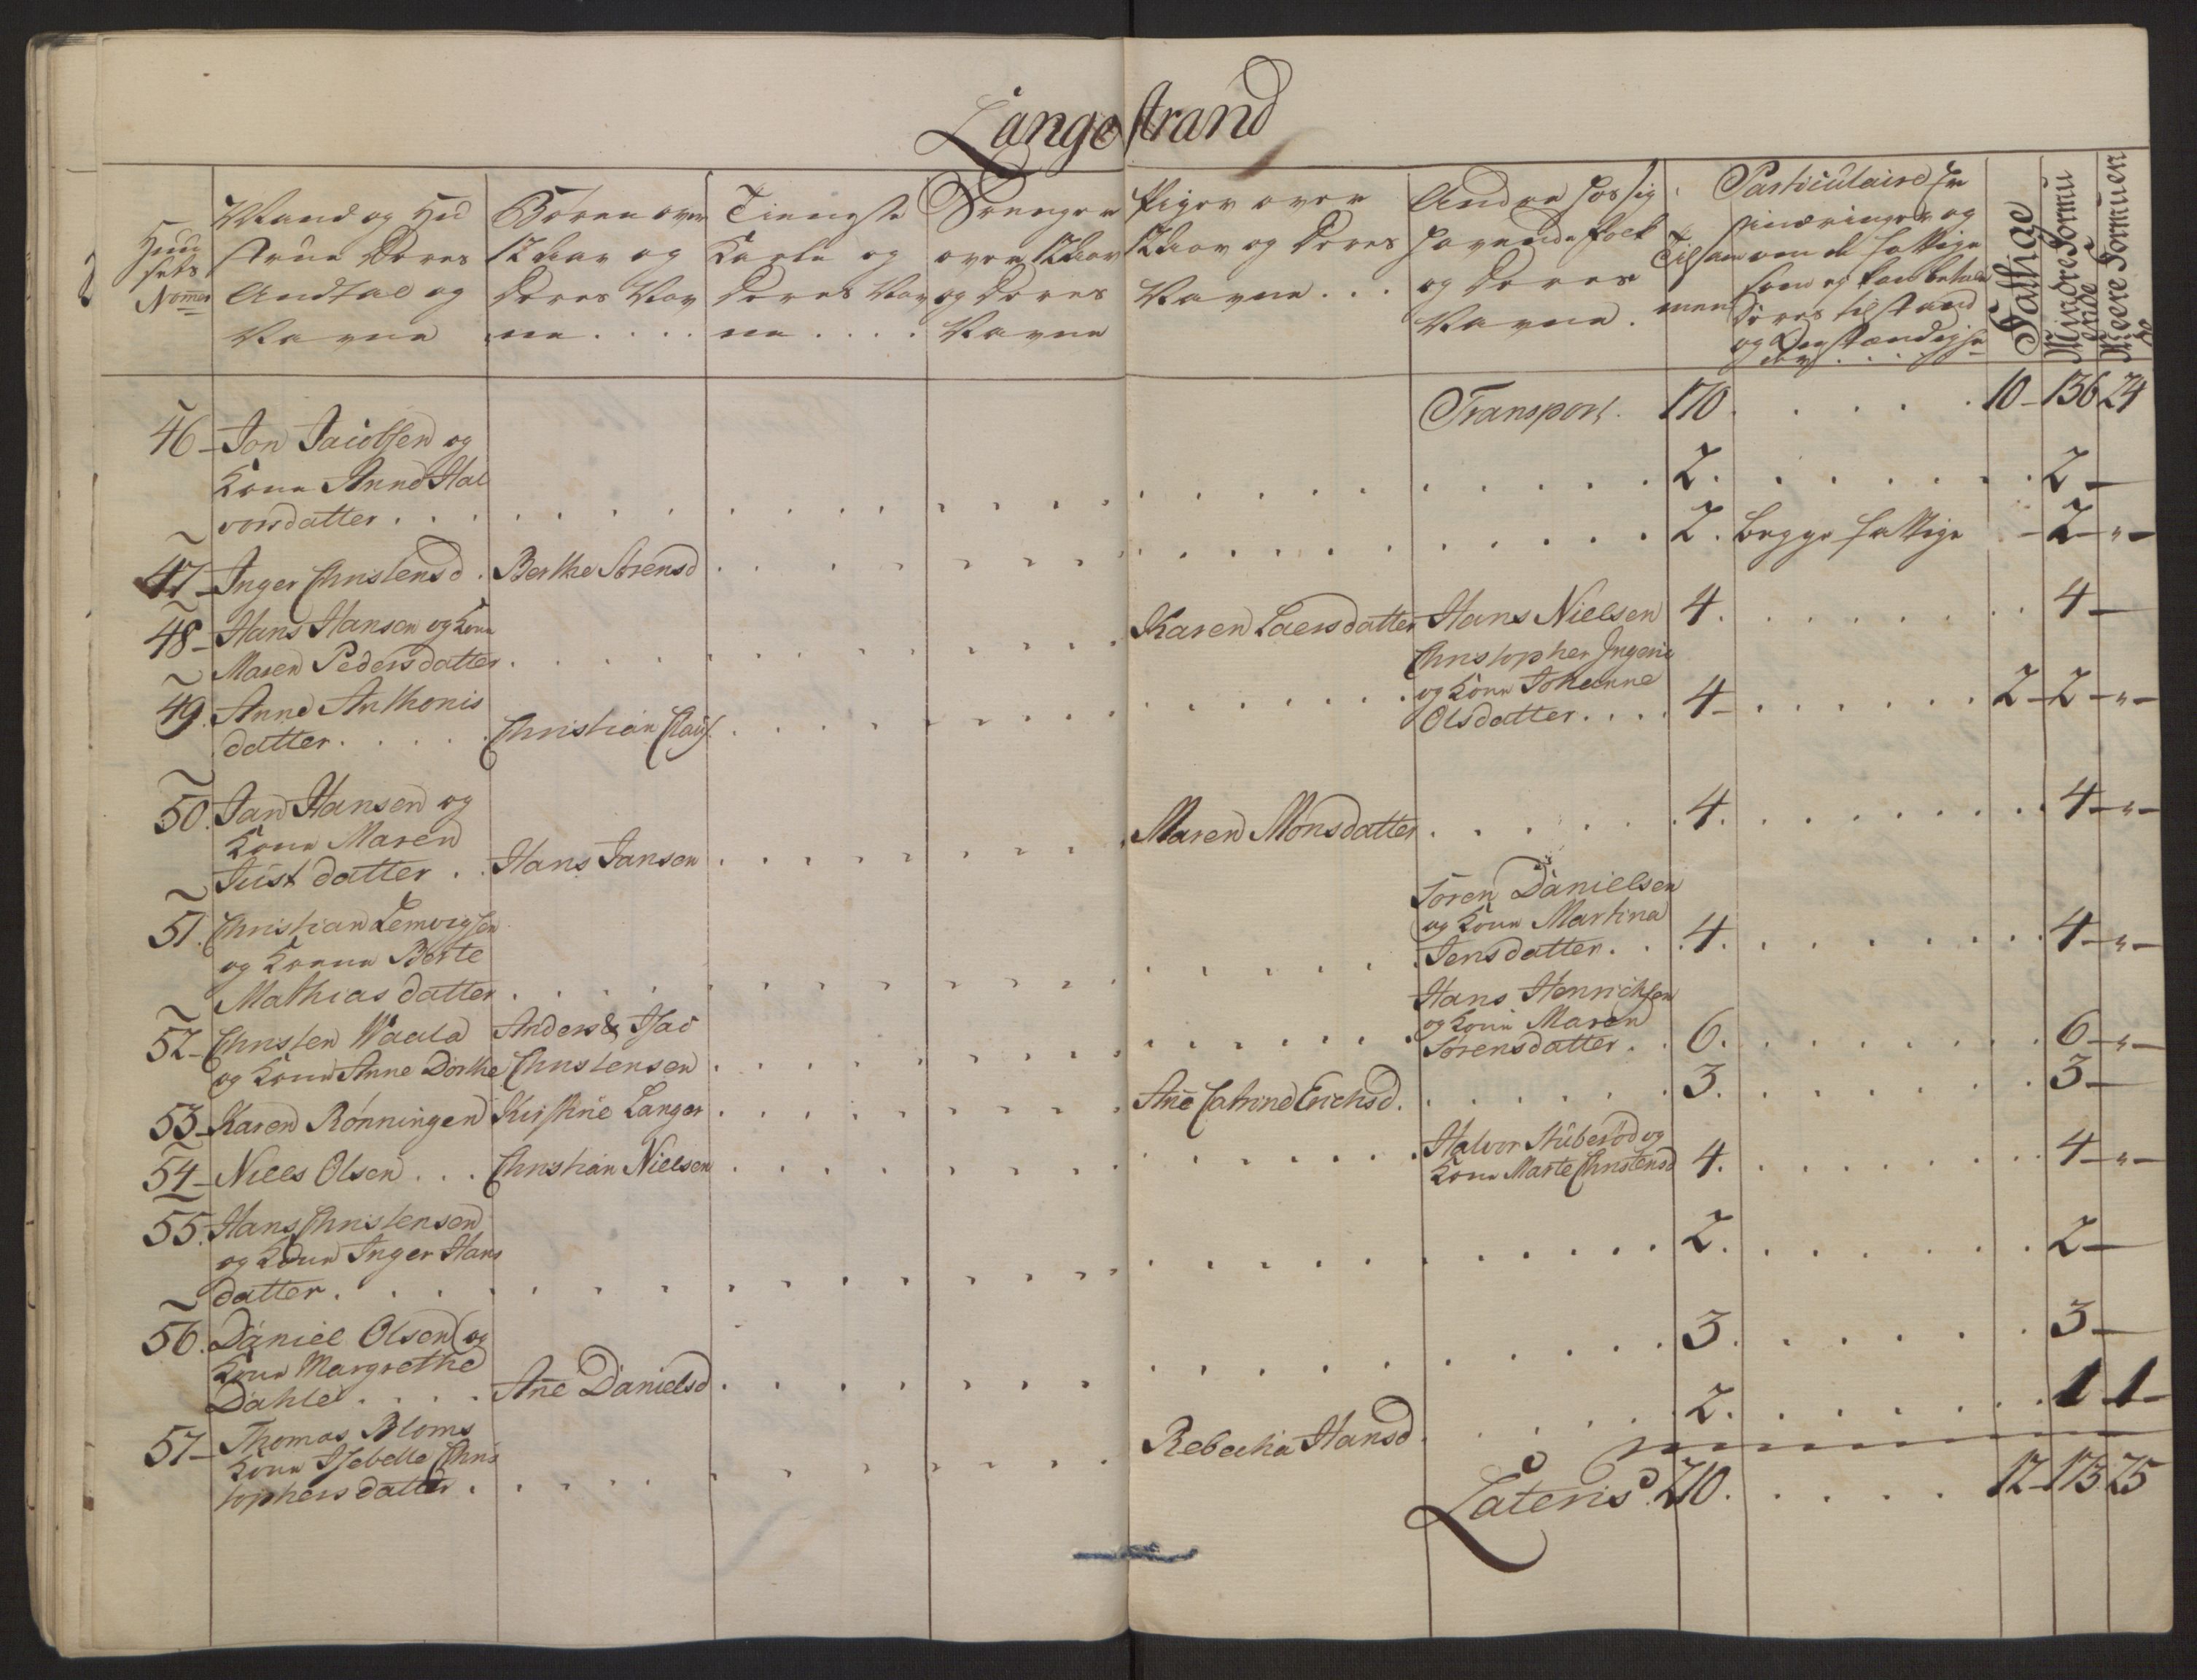 Langestrand
Huusets Nomer
Mand og Hustrue Deres Andtal og Navne
Børn over 12 Aar og Deres Navne . . . .
Tieniste Karle og Deres Navne . . . .
Drenger over 12 Aar og Deres Navne
Piger over 12 Aar og Deres Navne . . .
Andre hos sig havende folk og Deres Navne .
Tilsammen
Particulaire og om de fattige som ej kan betale Deres tilstand og Omstændigheder . . . .
Fattige
Mindre Formuende
Meere Formuende
Transport. 170. . . . . . 10 - 136 24
46 - Jon Jacobsen og
Kone Anne Hal
vorsdatter . . . 2. . . . 2 -
47 - Inger Christensd. Berthe Sørensd . . . 2. begge fattige - 2 - " -
48 - Hans Hansen og Kone
Maren Pedersdatter . . . Karen Laersdatter Hans Nielsen 4. . . . 4 -
49. Anne Anthonis
datter . . . Christian Claus. . . .
Christopher
og Kone Johanne
Olsdatter . . . . 4 - . . . 2 - 2 - " -
50. Jan Hansen og
Kone Maren
Just datter . . Hans Jansen . . . Maren Monsdatter . . . 4. . . . 4 - " -
51. Christian Lemvigsen
og Konne Berte
Mathias datter . . .
Søren Danielsen
og Kone Martina
Jensdatter . . 4. . . . 4 - " -
52 - Christen Waale Anders & Isac
og Kone Anne Dorthe Christensen . . .
Hans Henrichsen
og Kone Maren
Sørensdatter . . 6. . . . 6 - " -
53 - Karen Rønningen Kirstine Langer . . . Ane Catrine Erichsd. . . . 3. . . . 3 -
54 - Niels Olsen . . . Christian Nielsen . . .
Halvor Stuberød og
Kone Marte Christensd 4. . . . 4 - " -
55. Hans Christensen
og Kone Inger Hans
datter . . . 2. . . . 2 -
56. Daniel Olsen og
Kone Margrethe
Dahler . . . . Ane Danielsd . . . 3. . . . 3 -
57 - Thomas Bloms
Kone Isebelle Chris
tophersdatter . . . Rebecha Hansd . . . 2. . . . 1 1 -
Lateris 210. . . . . 12 - 173 25